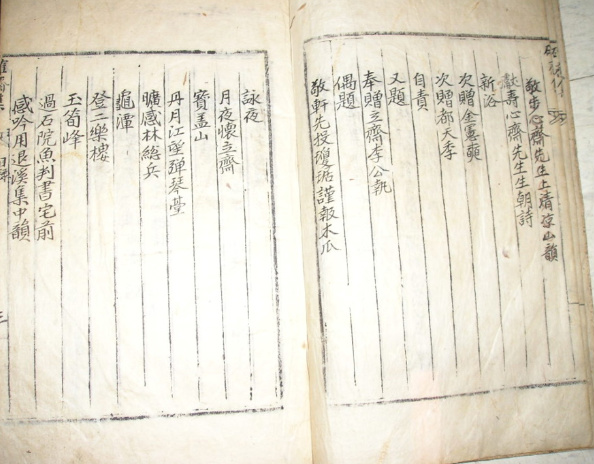 敬步心齋先生上清凉山韻
獻壽心齋先生生朝詩
新浴
次贈金憲
次贈都天季
自責
又題
奉贈立齋李公執
偶題
敬軒先投瓊琚謹報木瓜
詠夜
月夜懷立齋
寶盖山
丹月江望彈琴臺
曠感林總兵
龜潭
登二樂樓
玉筍峰
過石院魚判書宅前
感吟用退溪集中韻
三